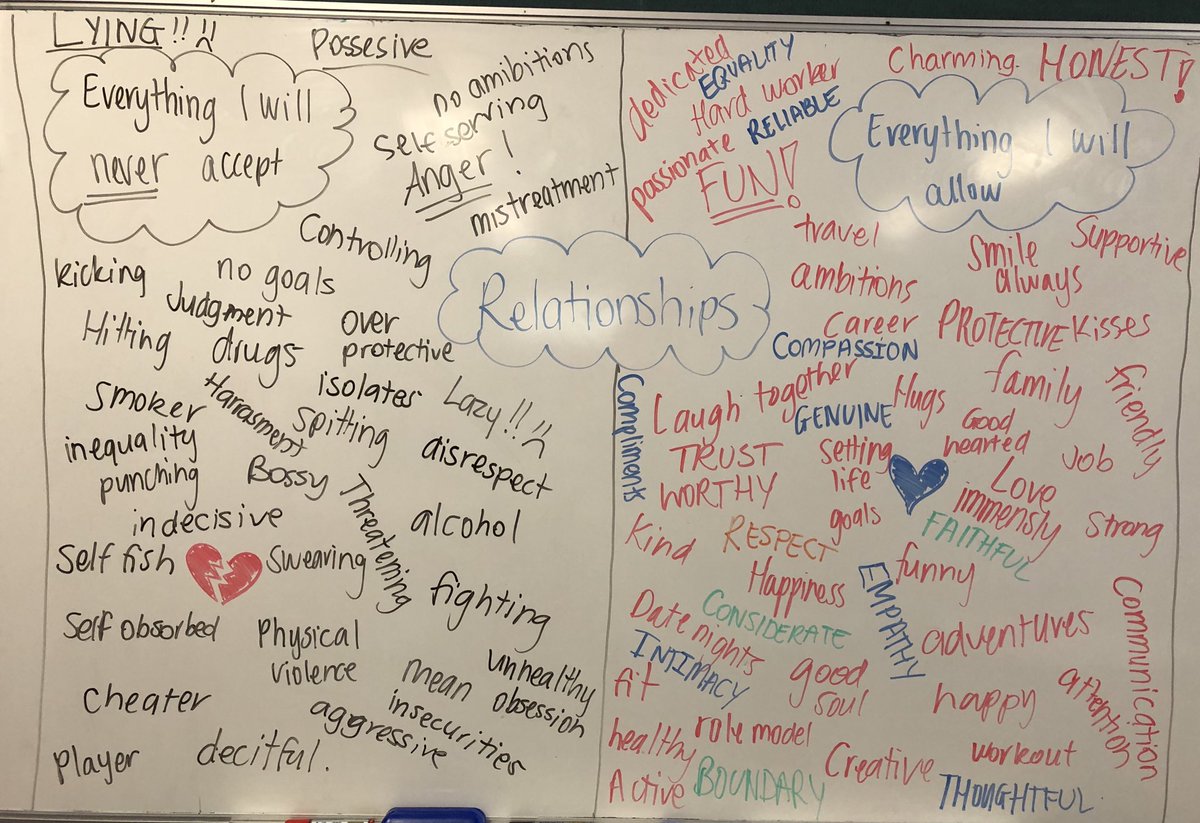 LYING!!!
Possesive
Everything I will
never accept
no amibitions
self serving
Anger!
mistreatment
Controlling
kicking
no goals
Judgment
Hitting
drugs
over
protective
isolates
Lazy!!!
Smoker
Harrasment
Spitting
inequality
disrespect
punching
Bossy
Threatening
indecisive
alcohol
Selffish
Swearing
fighting
Self obsorbed
Physical
violence
unhealthy
obsession
mean
Cheater
insecurities
aggressive
Player
decitful.
Relationships
dedicated
EQUALITY
Hard worker
RELIABLE
passionate
FUN!
Charming.
HONEST!
Everything I will
allow
travel
Smile
always
Supportive
ambitions
Career
PROTECTIVE
Kisses
COMPASSION
Compliments
Laugh together
GENUINE
Hugs
family
friendly
Good
hearted
TRUST
WORTHY
setting
life
goals
Job
Love
immensly
Strong
FAITHFUL
Kind
RESPECT
funny
Happiness
EMPATHY
CONSIDERATE
Date nights
INTIMACY
adventures
Communication
good
soul
fit
happy
attention
healthy
role model
workout
Creative
Active
BOUNDARY
THOUGHTFUL